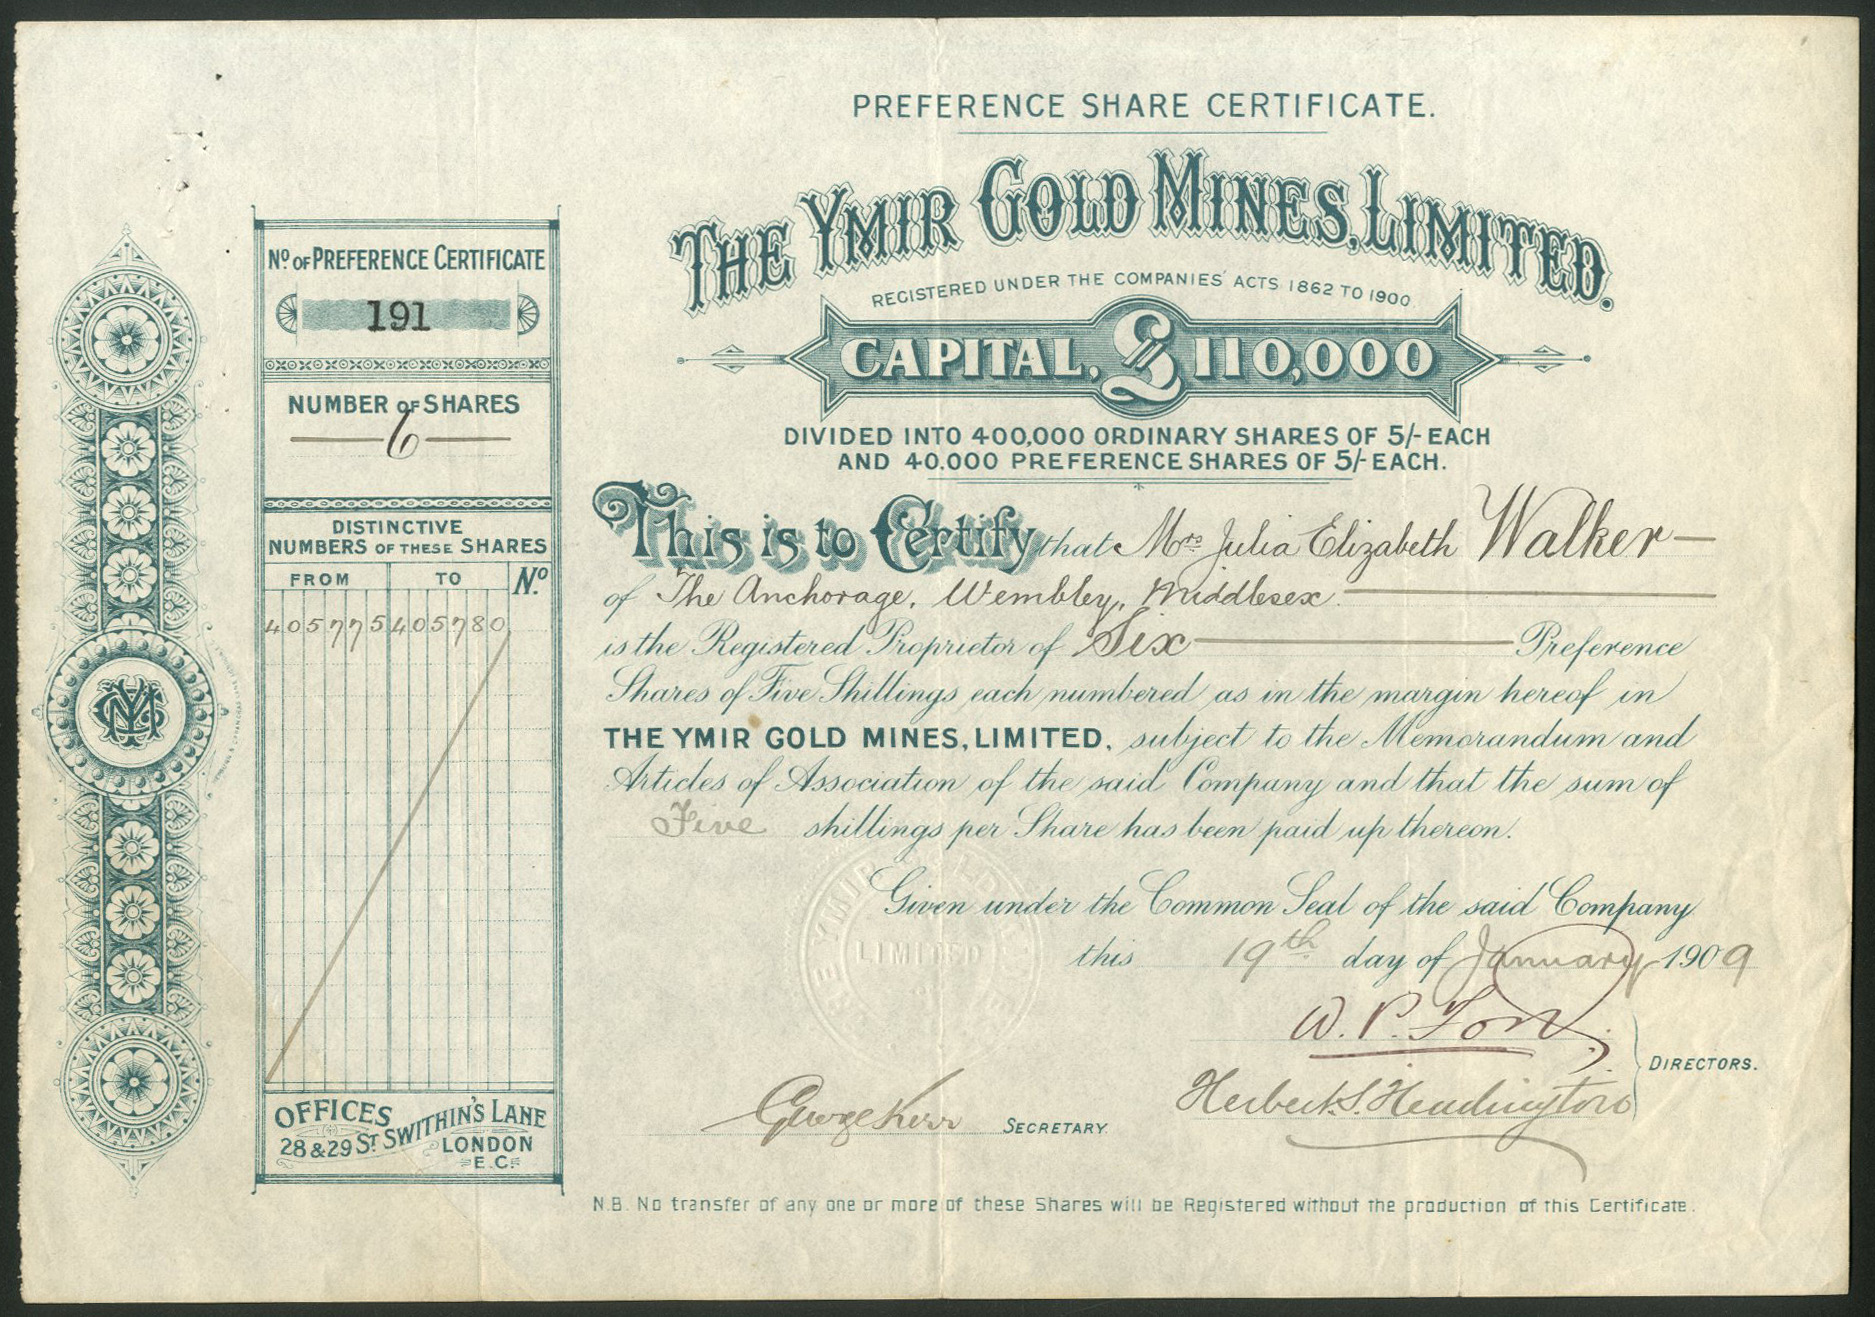 PREFERENCE SHARE CERTIFICATE.
THE YMIR GOLD MINES, LIMITED.
REGISTERED UNDER THE COMPANIES' ACTS 1862 TO 1900
CAPITAL, £110,000
DIVIDED INTO 400,000 ORDINARY SHARES OF 5/- EACH
AND 40.000 PREFERENCE SHARES OF 5/- EACH.
This is to Certify that Mrs Julia Elizabeth Walker
of The Anchorage, Wembley, Middlesex
is the Registered Proprietor of Six Preference
Shares of Five Shillings each numbered as in the margin hereof in
THE YMIR GOLD MINES, LIMITED, subject to the Memorandum and
Articles of Association of the said Company and that the sum of
Five shillings per Share has been paid up thereon.
Given under the Common Seal of the said Company
this 19th day of January 1909
W. P. Fon
Herbert S. Headington
DIRECTORS.
George Kerr SECRETARY.
N.B. No transfer of any one or more of these Shares will be Registered without the production of this Certificate.
No. OF PREFERENCE CERTIFICATE
191
NUMBER OF SHARES
6
DISTINCTIVE
NUMBERS OF THESE SHARES
FROM TO No.
405775 405780
OFFICES
28 & 29 ST. SWITHIN'S LANE
LONDON
E.C.
YMGM
LIMITED